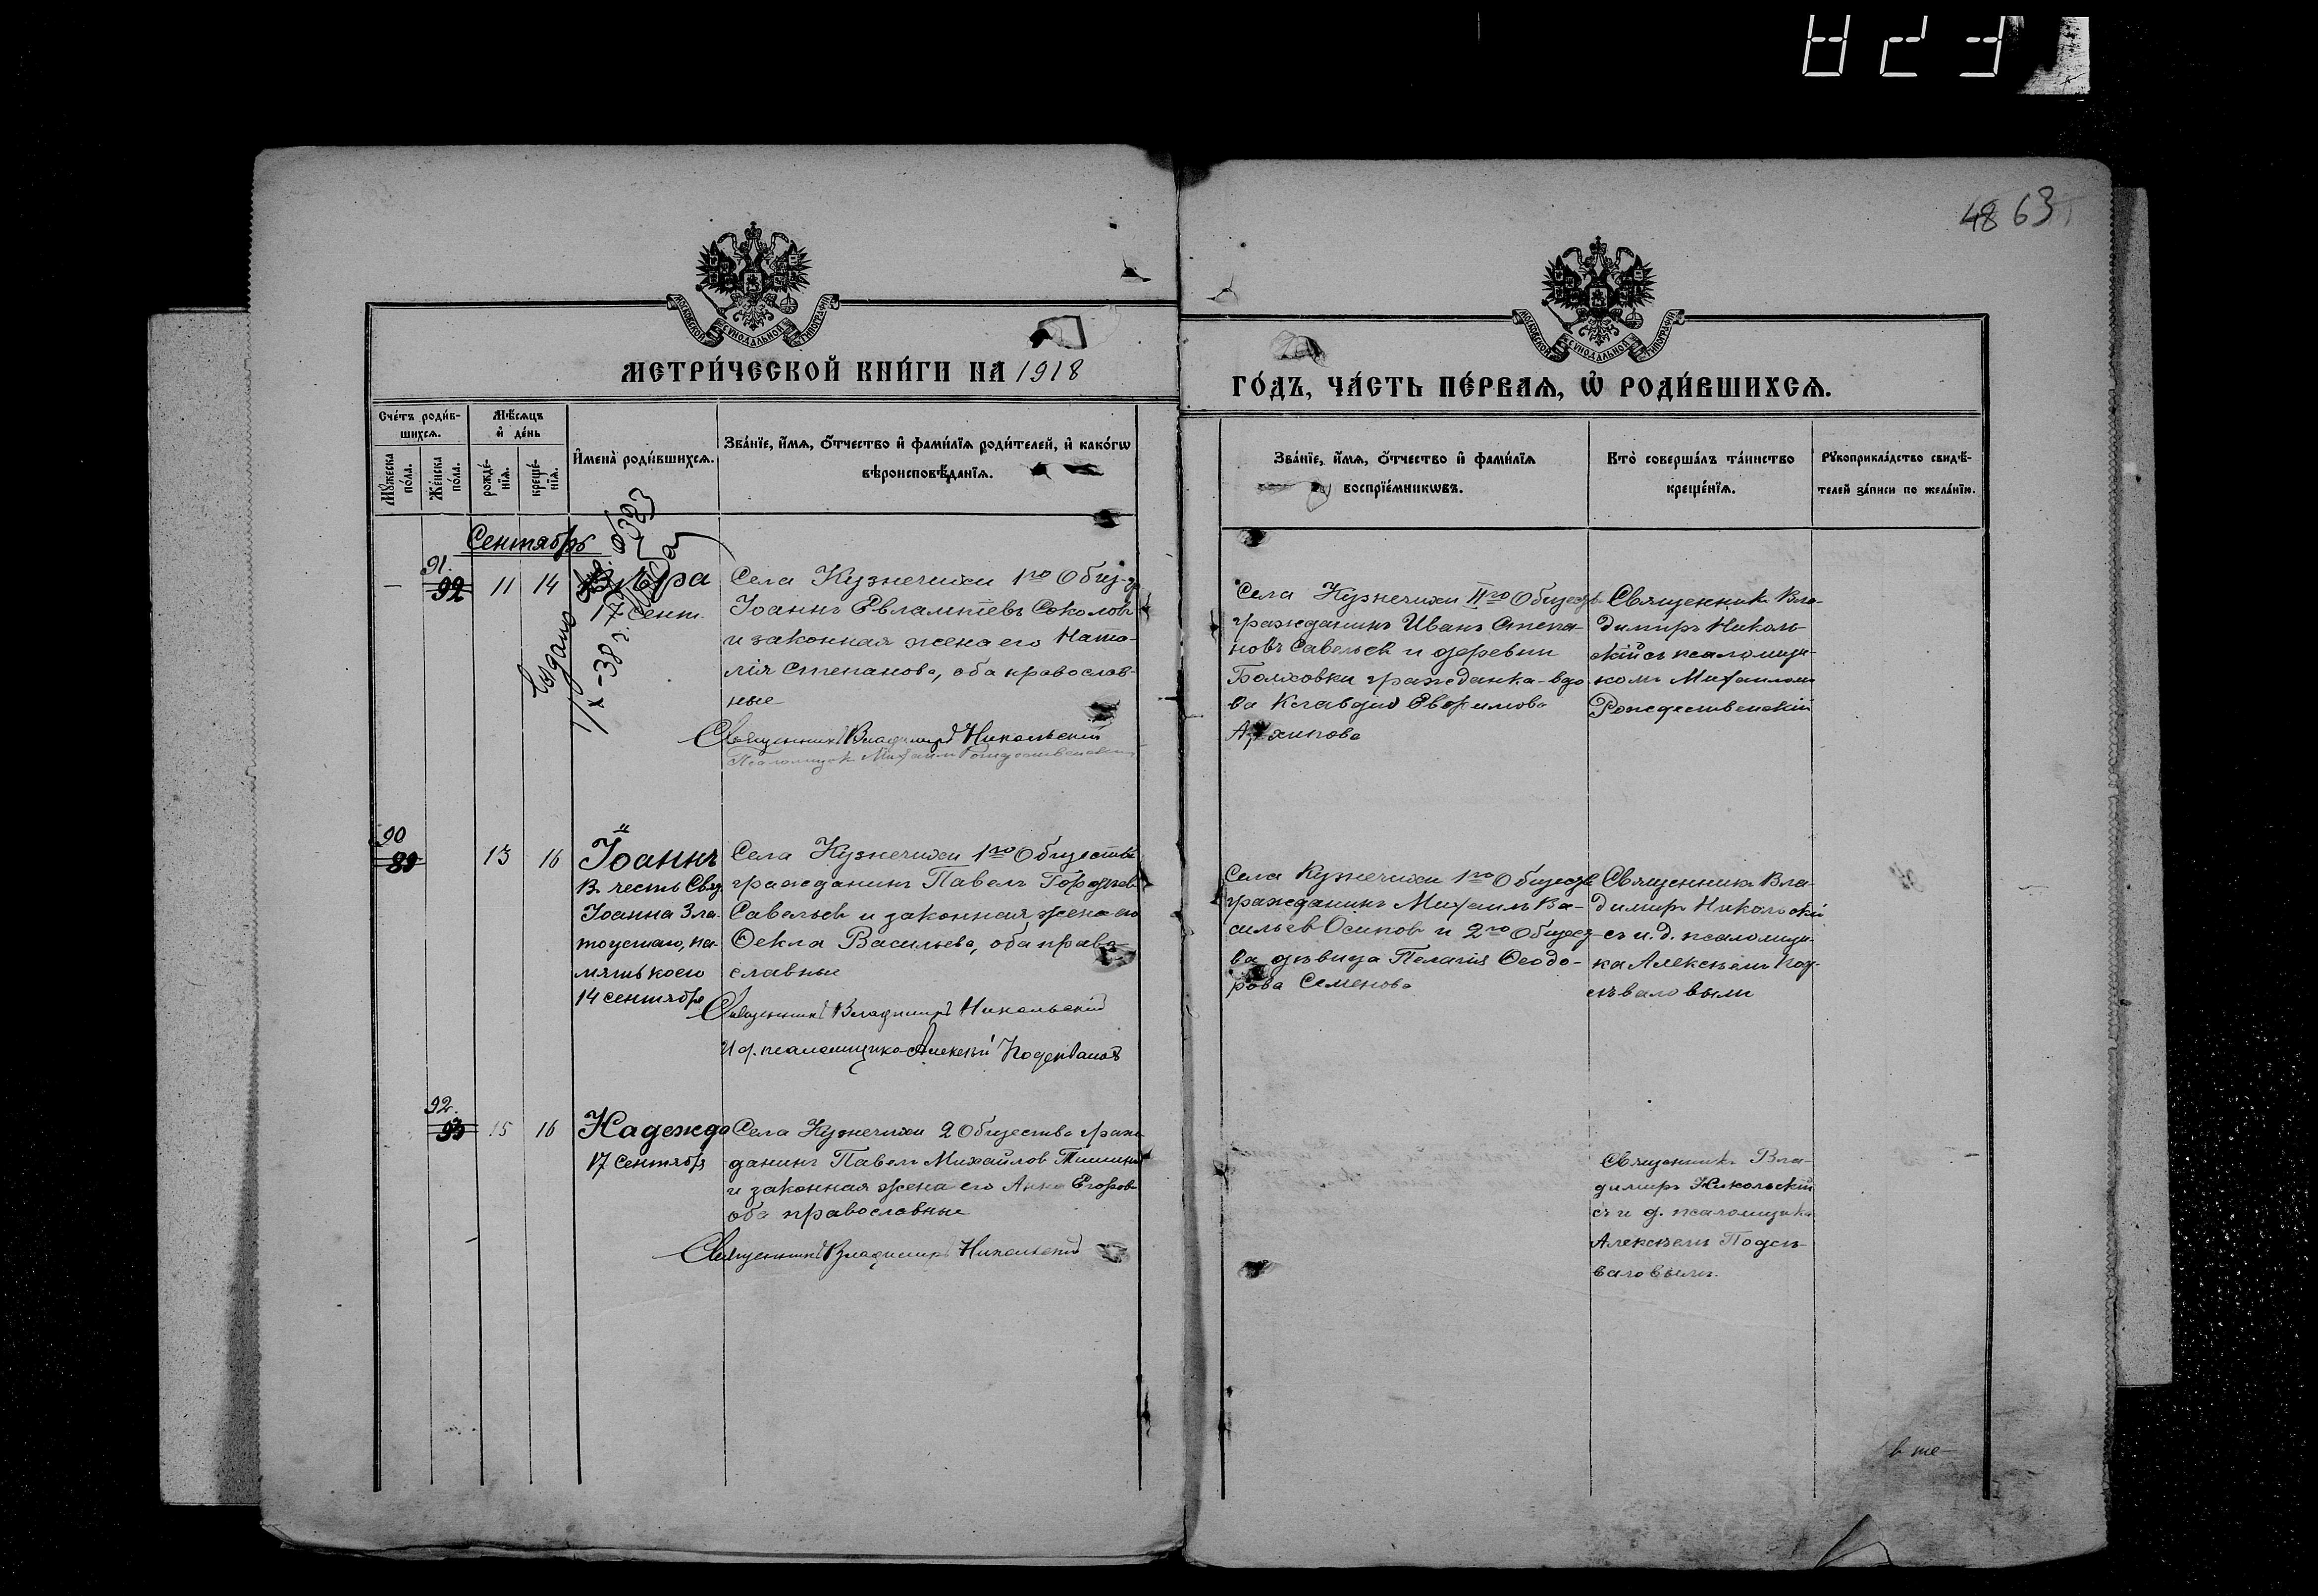 48 63
МОСКОВСКОЙ СѴНОДАЛЬНОЙ ТИПОГРАФІИ
МОСКОВСКОЙ СѴНОДАЛЬНОЙ ТИПОГРАФІИ
МЕТРИ́ЧЕСКОЙ КНИ́ГИ НА 1918
ГО́ДЪ, ЧА́СТЬ ПЕ́РВАѦ, Ѡ҆ РОДИ́ВШИХСѦ.
Сче́тъ роди́в-
шихсѧ.
Мѣ́сѧцъ
и҆ де́нь
Мꙋ́жеска
по́ла.
Же́нска
по́ла.
рожде́-
нїѧ.
креще́-
нїѧ.
И҆мена̀ роди́вшихсѧ.
Зва́нїе, и҆́мѧ, ѻ҆́тчество и҆ фами́лїѧ роди́телей, и҆ како́гѡ
вѣроисповѣ́данїѧ.
Зва́нїе, и҆́мѧ, ѻ҆́тчество и҆ фами́лїѧ
воспрїе́мникѡвъ.
Кто̀ соверша́лъ та́инство
креще́нїѧ.
Рꙋкоприкла́дство свидѣ́-
телей за́писи по жела́нїю.
Сентябрь
91.
92 11 14 Вѣра
17 Сент.
Села Кузнечихи 1го Общ-ва
Іоаннъ Евлампіевъ Соколовъ
и законная жена его Ната-
лія Степанова, оба православ-
ные
Священникъ Владимиръ Никольскій
Псаломщикъ Михаилъ Рождественскій
Села Кузнечихи IIго Общества
гражданинъ Иванъ Степа-
новъ Савельев и деревни
гражданка-вдо-
ва Клавдия
Архипова
Священникъ Вла-
димиръ Николь-
скій съ псаломщи-
комъ Михаиломъ
Рождественскій
90
89 13 16 Іоаннъ
В честь Свят.
Іоанна Зла-
тоустаго, па-
мять коего
14 сентября
Села Кузнечихи 1го Общества
гражданинъ Павелъ
Савельев и законная жена его
Ѳекла Васильева, оба право-
славные
Священникъ Владимиръ Никольскій
И д. псаломщика Алексѣй Подсѣваловъ
Села Кузнечихи 1го Общества
гражданинъ Михаилъ Ва-
сильев Осипов и 2го Общест-
ва дѣвица Пелагія Ѳеодо-
рова Семенова
Священникъ Вла-
димиръ Никольскій
съ и. д. псаломщи-
ка Алексѣемъ Под-
сѣваловымъ
92.
93 15 16 Надежда
17 Сентября
Села Кузнечихи 2 Общества граж-
данинъ Павелъ Михайлов
и законная жена его Анна Егорова
оба православные
Священникъ Владимиръ Никольскій
Священникъ Вла-
димиръ Никольскій
съ и д. псаломщика
Алексѣемъ Подсѣ-
валовымъ.